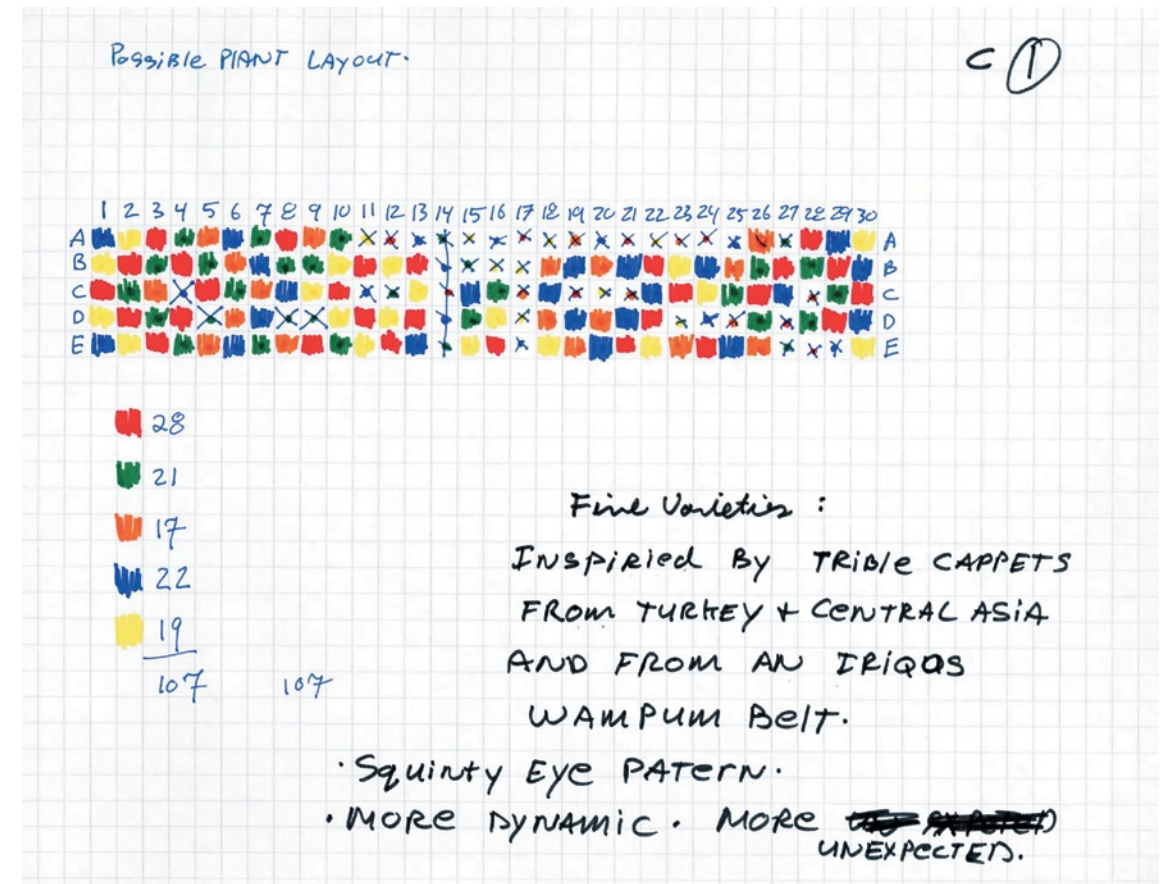 Possible PlANT LAyouT.
C 1
1 2 3 4 5 6 7 8 9 10 11 12 13 14 15 16 17 18 19 20 21 22 23 24 25 26 27 28 29 30
A A
B B
C C
D D
E E
28
21
17
22
19
107 107
Five Varieties :
INSpiRied By TRiBle CAPPETS
FROM TURKEY + CENTRAL ASiA
AND FROM AN IRiQOS
WAMPUM BelT.
· Squinty Eye PATern.
· MORe DyNAMiC. MORe
UNEXPECTED.